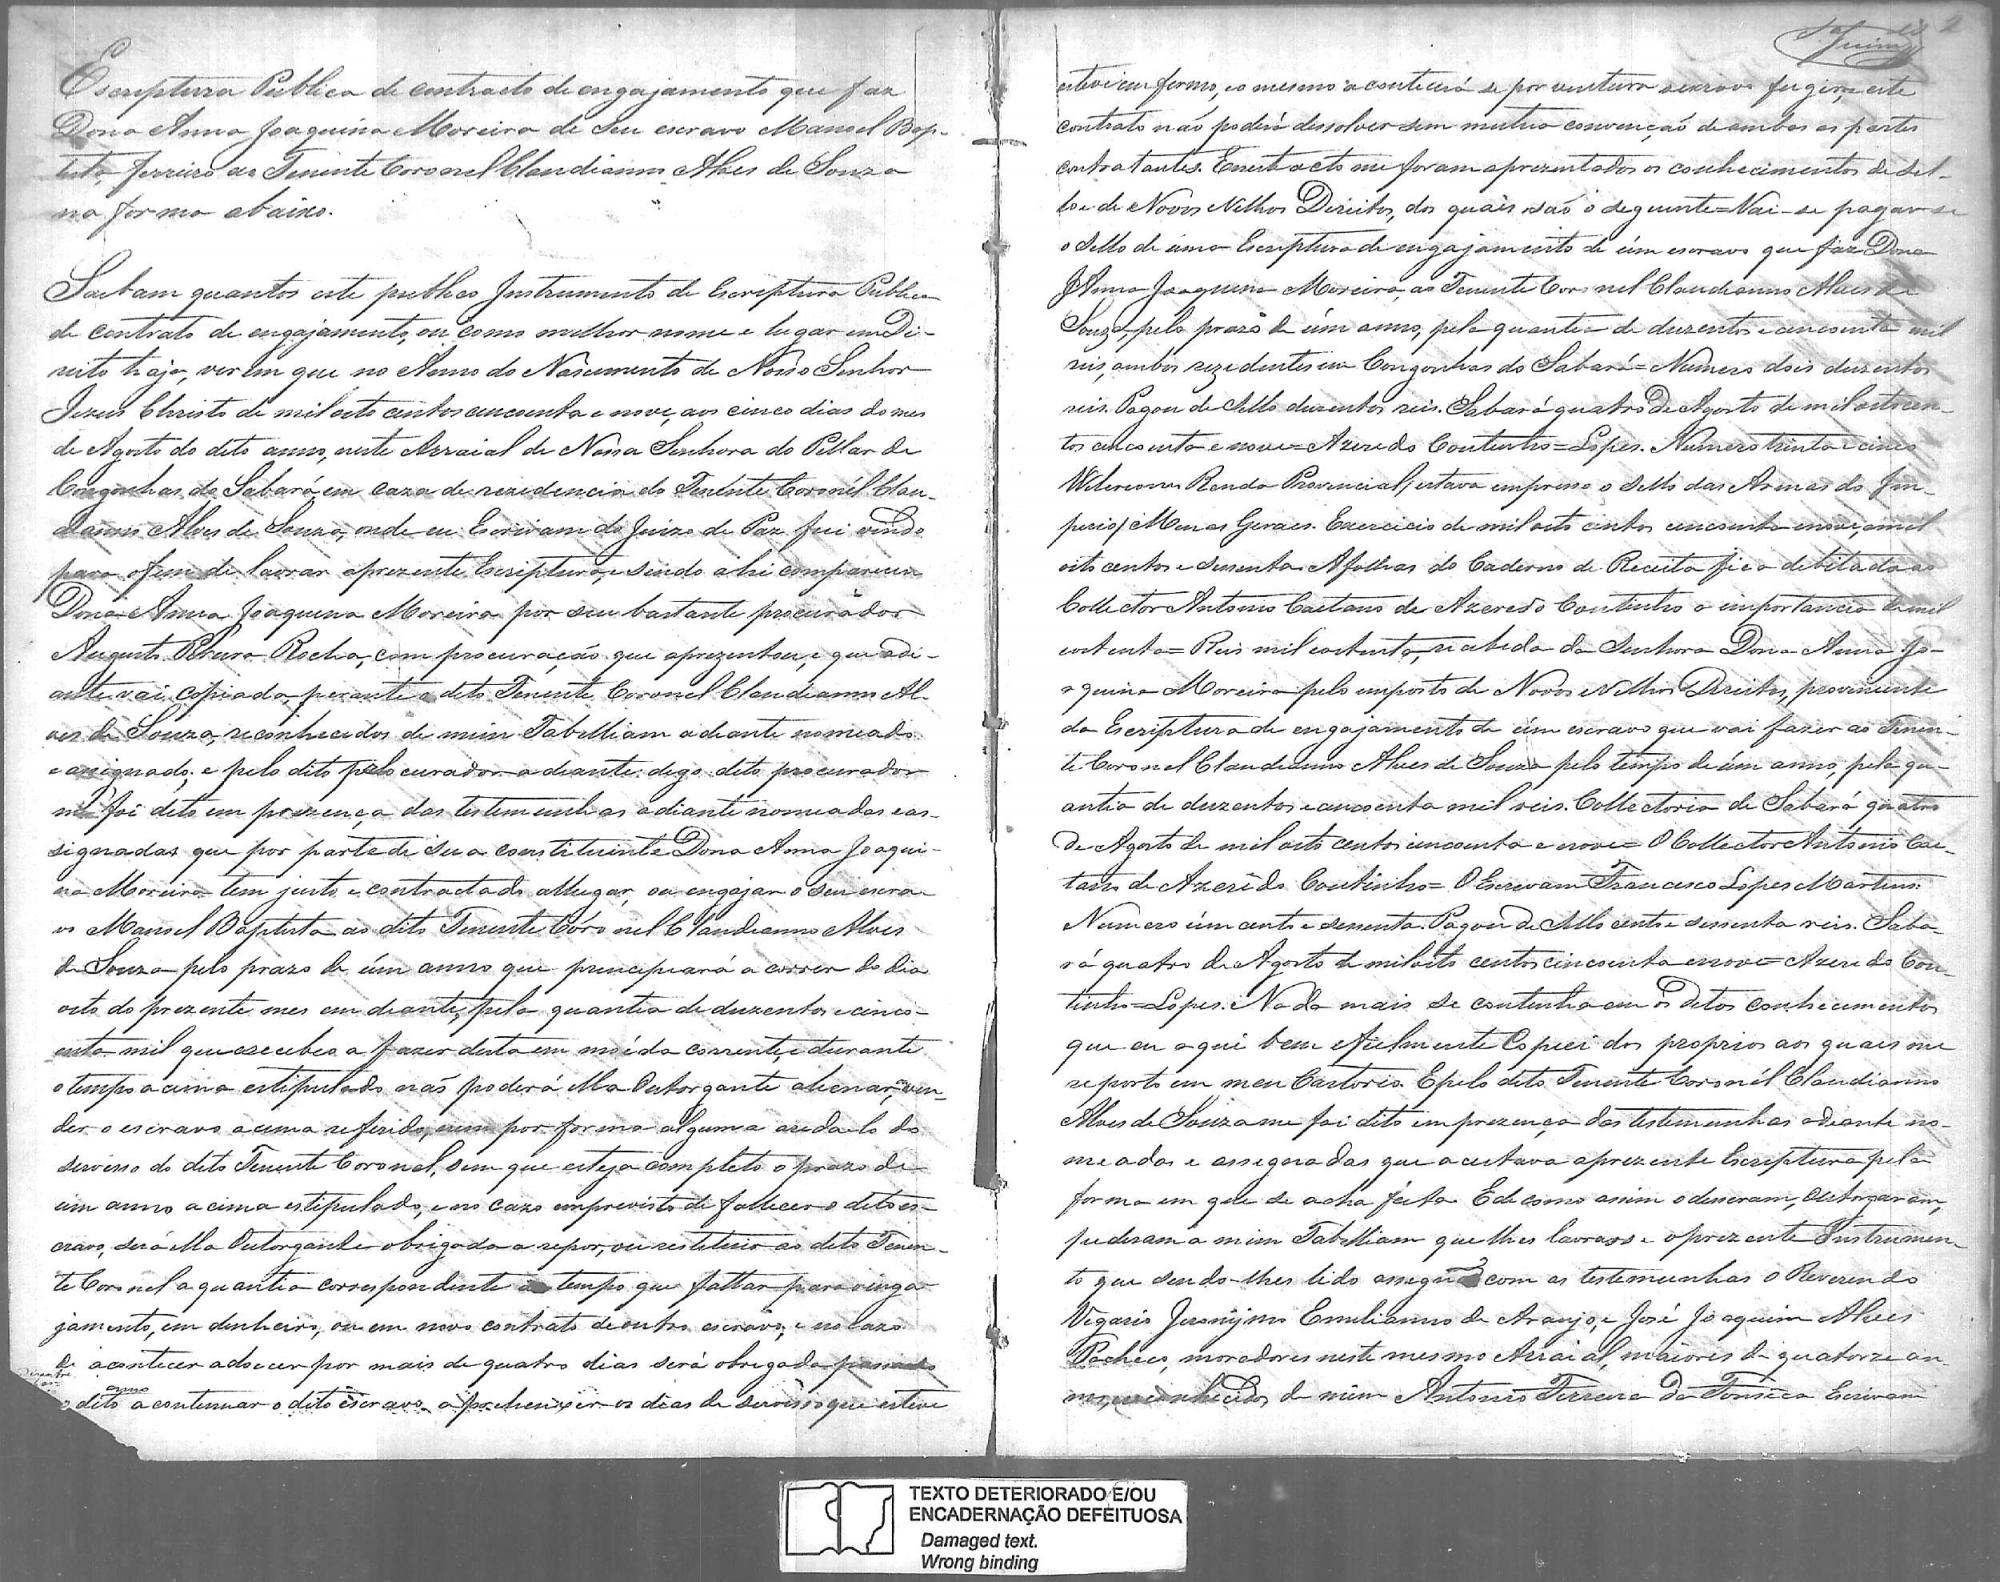 Escriptura Publica de contracto de engajamento que faz
Dona Anna Joaquina Moreira de seu escravo Manoel Bap-
tista, ferreiro ao Tenente Coronel Claudianno Alves de Souza
na forma abaixo.
Saibam quantos este publico Instrumento de Escriptura Publica
de contrato de engajamento, ou como milhor nome e lugar em Di-
reito haja, virem que no Anno do Nascimento de Nosso Senhor
Jezus Christo de mil oito centos cincoenta e nove, aos cinco dias do mes
de Agosto do dito anno, neste Arraial de Nossa Senhora do Pillar de
Congonhas do Sabará em caza de rezedencia do Tenente Coronél Clau-
dianno Alves de Souza, onde eu Escrivam do Juizo de Paz fui vindo
para ofim de lavrar aprezente Escriptura, e sindo ahi compareceu
Dona Anna Joaquina Moreira por seu bastante procurador
Augusto Ribeiro Rocha, com procuração que aprezentou, e que adi-
ante vai copiada, perante o dito Tenente Coronel Claudianno Al-
ves de Souza, reconhecidos de mim Tabelliam adiante nomeado
e assignado; e pelo dito procurador adiante digo dito procurador
me foi dito em prezença das testemunhas adiante nomeadas e as-
signadas que por parte de sua constituinte Dona Anna Joaqui-
na Moreira tem justo e contractado allugar, ou engajar o seu escra-
vo Manoel Baptista ao dito Tenente Córonel Claudianno Alves
de Souza pelo prazo de úm anno que principiará a correr do dia
oito do prezente mes em deante, pela quantia de duzentos e cinco-
enta mil que recebeo a fazer desta em moéda corrente, e durante
o tempo acima estipulado naõ poderá Ella Outorgante alienar, ven-
der o escravo acima referido, nem por forma alguma arreda-lo do
servisso do dito Tenente Coronel, sem que esteja completo o prazo de
um anno acima estipulado, e no cazo imprevisto de fallecer o dito es-
cravo, será Ella Outorgante obrigada a repor, ou restituir ao dito Tenen-
te Coronel a quantia correspondente ao tempo que faltar para o inga-
jamento, em dinheiro, ou em novo contrato de outro escravo, e no cazo
de acontecer adoecer por mais de quatro dias será obrigada passado
o dito anno a continuar o dito escravo a prehenxer os dias de servisso que esteve
esteve enfermo, e o mesmo acontecerá se por ventura o escravo fugir, e este
contrato naõ poderá dissolver sem mutua convençaõ de ambas as partes
contratantes. Eneste acto me foram aprezentados os conhecimentos de sel-
lo e de Novos e Velhos Direitos, dos quais saõ o seguinte = Vai-se pagar
o Sello de uma Escriptura de engajamento de úm escravo que faz Dona
Anna Joaquina Moreira, ao Tenente Coronel Claudianno Alves de
Souza, pelo prazo de úm anno, pela quantia de duzentos e cincoenta mil
reis, ambos rezedentes em Congonhas do Sabará = Numero dois duzentos
reis. Pagou de Sello duzentos reis. Sabará quatro de Agosto de mil oito cen-
tos cincoenta e nove = Azeredo Coutinho = Lopes. Numero trinta e cinco
Renda Provincial/estava empresso o Sello das Armas do Im-
perio/Minas Geraes. Exercicio de mil oito centos cincoenta e nove, a mil
oito centos e sessenta. A folhas do Caderno de Receita fica debitado ao
Collector Antonio Caetano de Azeredo Coutinho a importancia de mil
e oitenta = Reis mil e oitenta, recebida da Senhora Dona Anna Jo-
aquina Moreira pelo imposto de Novos e Velhos Direitos, proveniente
da Escriptura de engajamento de úm escravo que vai fazer ao Tenen-
te Coronel Claudianno Alves de Souza pelo tempo de úm anno, pela qu-
antia de duzentos e cincoenta mil reis. Collectoria de Sabará quatro
de Agosto de mil oito centos cincoenta e nove = O Collector Antonio Cae-
tano de Azerêdo Coutinho = O Escrivam Francisco Lopes Martins.
Numero úm cento e sessenta. Pagou de Sello cento e sessenta reis. Saba-
rá quatro de Agosto de mil oito centos cincoenta e nove = Azeredo Cou-
tinho = Lopes. Nada mais se continha em os ditos conhecimentos
que eu aqui bem e fielmente Copiei dos proprios aos quais me
reporto em meu Cartorio. E pelo dito Tenente Coronél Claudianno
Alves de Souza me foi dito em prezença das testemunhas adeante no-
meadas e assignadas que aceitava aprezente Escriptura pela
forma em que se acha feita. E de como assim o disseram, outorgaram,
pediram a mim Tabelliam que lhes lavrasse o prezente Instrumen-
to que sendo-lhes lido com as testemunhas o Reverendo
Vigario Jeronÿmo Emilianno de Araujo, e José Joaquim Alves
Pacheco, moradores neste mesmo Arraial, maiores de quatorze an-
nos, reconhecidos de mim Antonio Ferreira da Fonseca Escrivam
TEXTO DETERIORADO E/OU
ENCADERNAÇÃO DEFEITUOSA
Damaged text.
Wrong binding